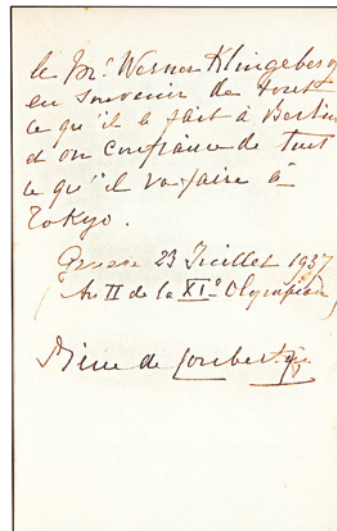 à Mr. Werner Klingeberg
en souvenir de tout
ce qu'il a fait à Berlin
et en confiance de tout
ce qu'il va faire à
Tokyo.
23 Juillet 1937
(An II de la XIe Olympiade)
Pierre de Coubertin